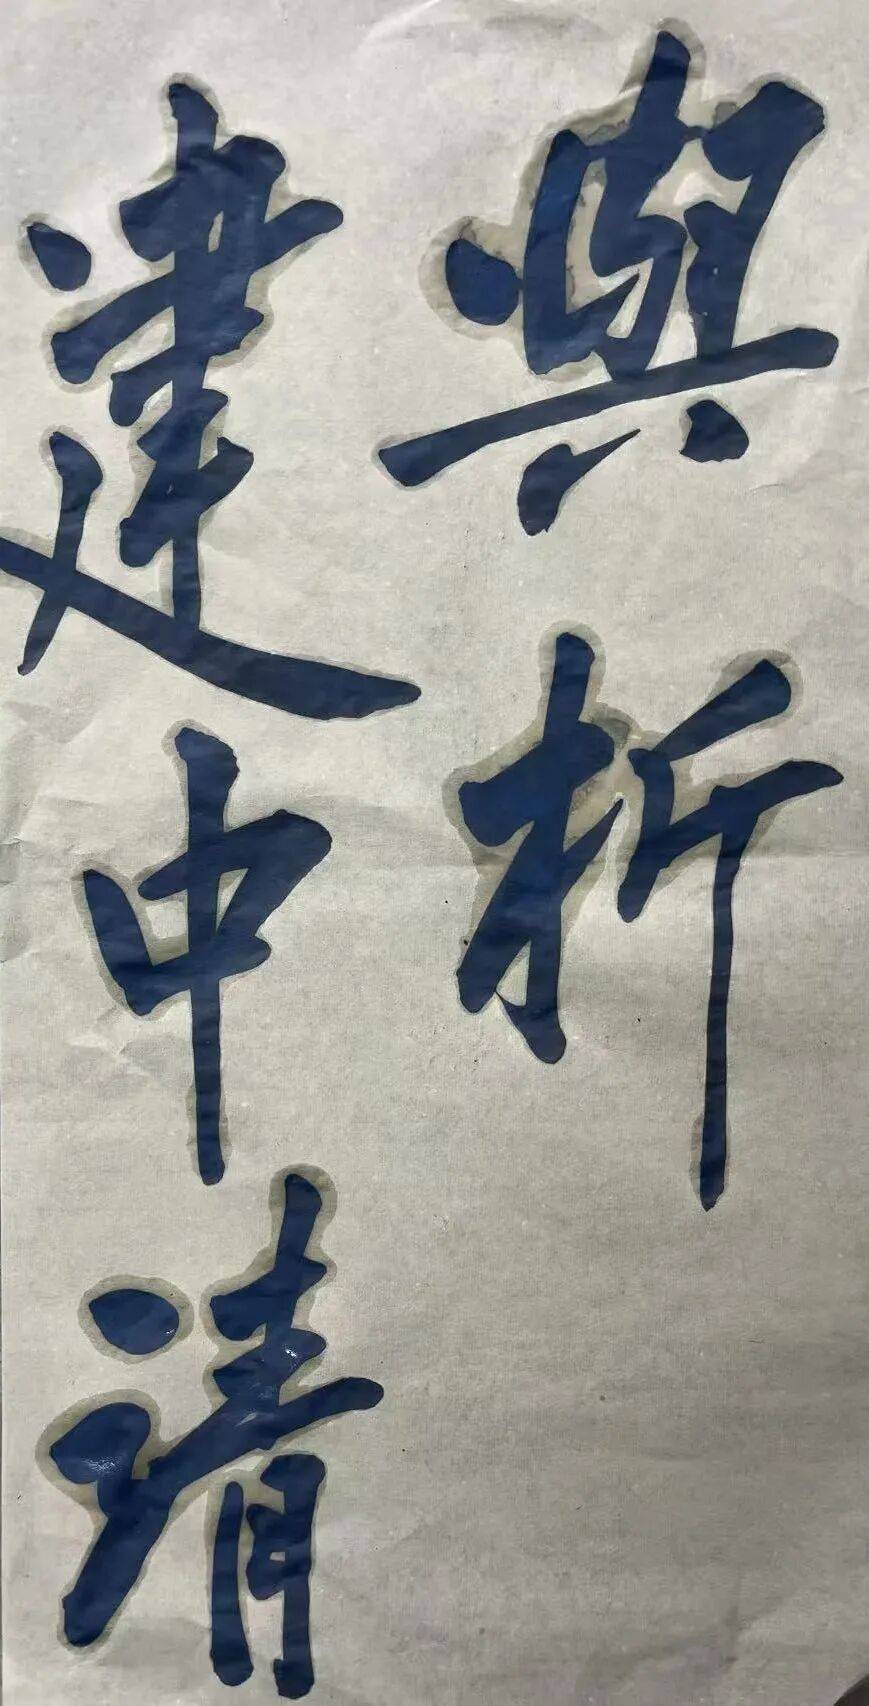 與析
建中清